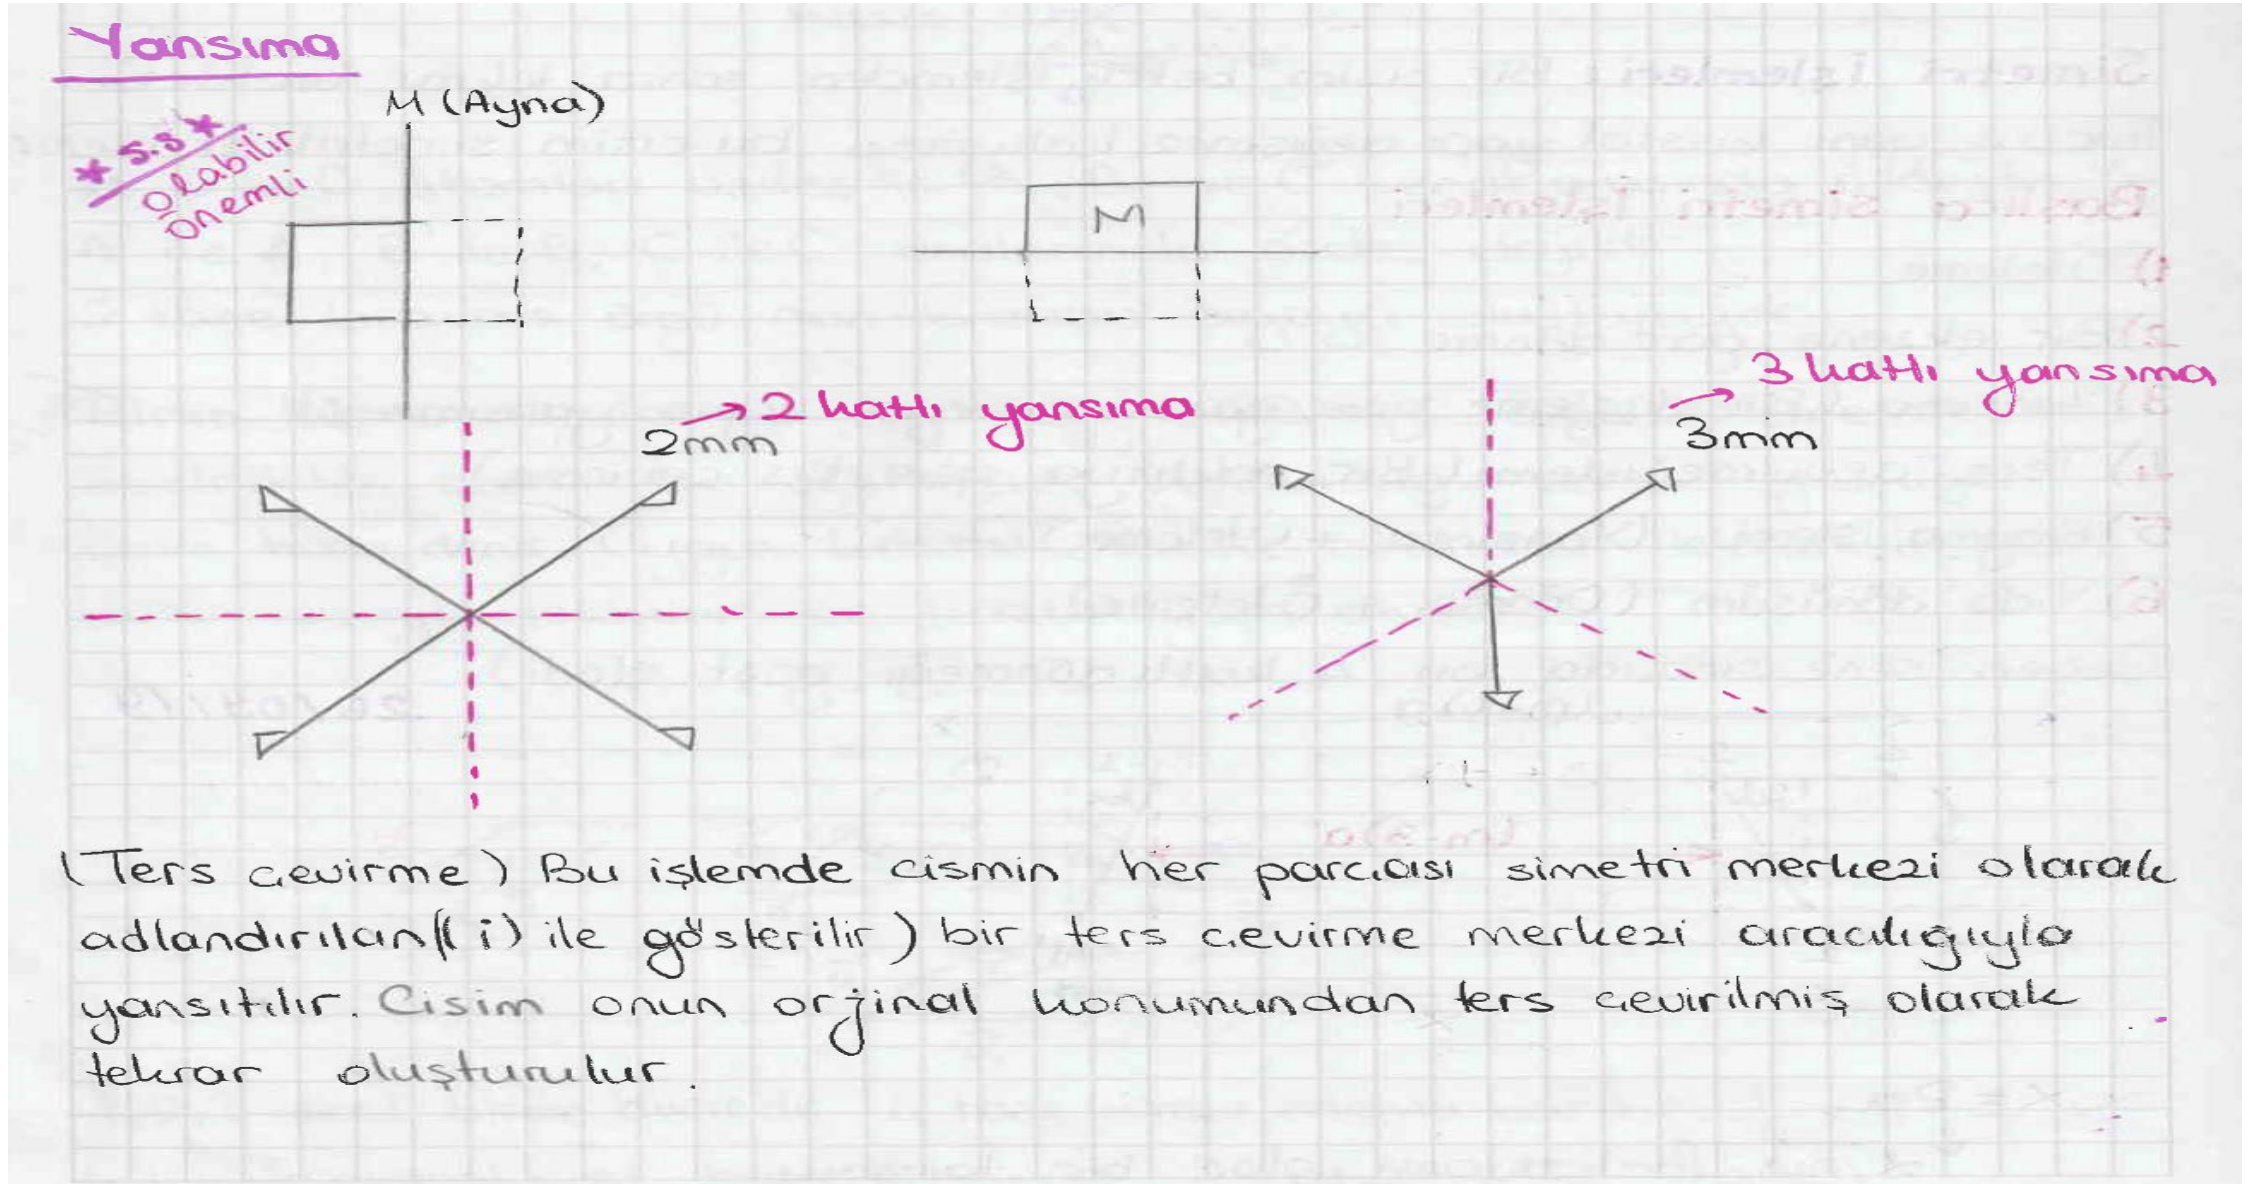 Yansıma
M (Ayna)
* S.S *
Olabilir
Önemli
M
2mm → 2 katlı yansıma
3mm → 3 katlı yansıma
(Ters çevirme) Bu işlemde cismin her parçası simetri merkezi olarak
adlandırılan((i) ile gösterilir) bir ters çevirme merkezi aracılığıyla
yansıtılır. Cisim onun orjinal konumundan ters çevirilmiş olarak
tekrar oluşturulur.